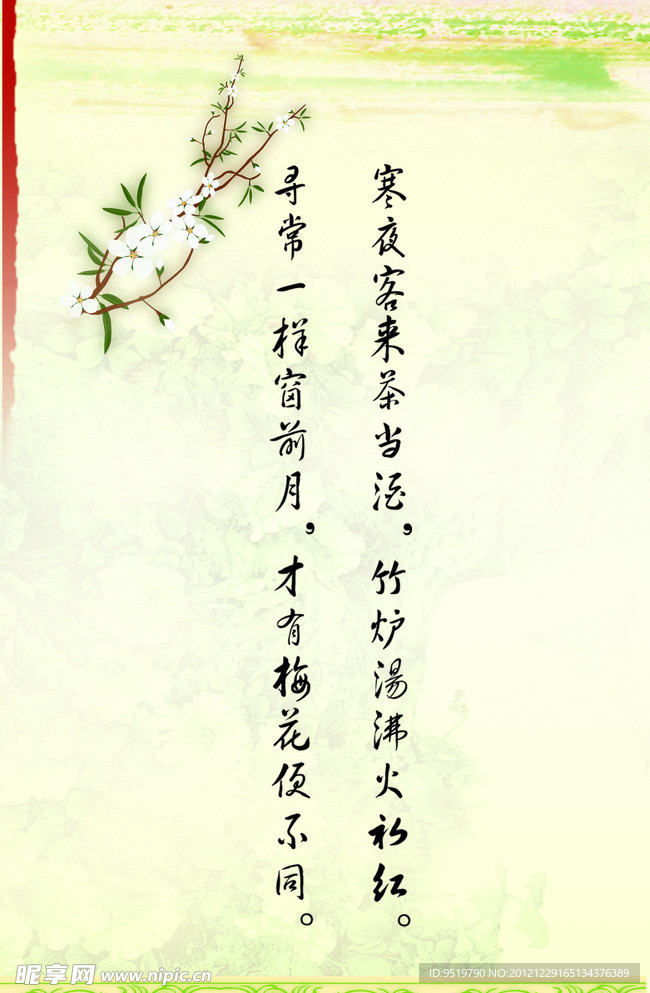 寒夜客来茶当酒，竹炉湯沸火初红。
寻常一样窗前月，才有梅花便不同。
昵享网 www.nipic.cn
ID:9519790 NO:20121229165134376389